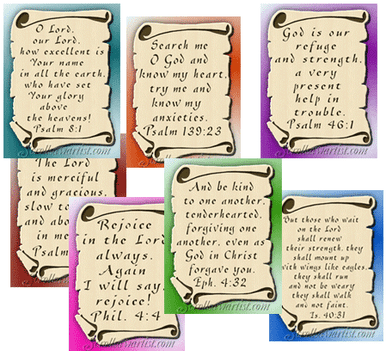 O Lord,
our Lord,
how excellent is
Your name
in all the earth,
who have set
Your glory
above
the heavens!
Psalm 8:1
Search me
O God and
know my heart,
try me and
know my
anxieties.
Psalm 139:23
God is our
refuge
and strength,
a very
present
help in
trouble.
Psalm 46:1
The Lord
is merciful
and gracious,
slow to
and
in me
Psalm
Rejoice
in the Lord
always.
Again
I will say,
rejoice!
Phil. 4:4
And be kind
to one another,
tenderhearted,
forgiving one
another, even as
God in Christ
forgave you.
Eph. 4:32
But those who wait
on the Lord
shall renew
their strength; they
shall mount up
with wings like eagles,
they shall run
and not be weary
they shall walk
and not faint.
Is. 40:31